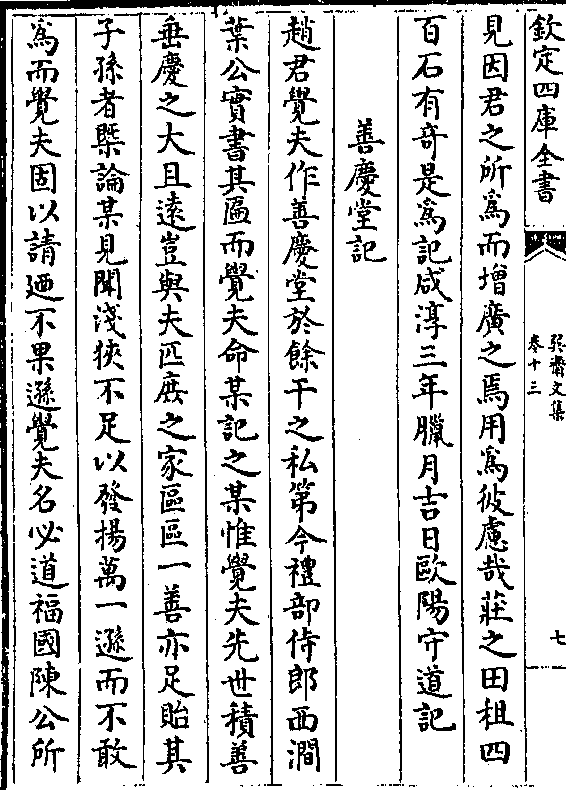 欽定四庫全書
巽齋文集
卷十三
七
見因君之所爲而增廣之焉用爲彼慮哉莊之田租四
百石有奇是爲記咸淳三年臘月吉日歐陽守道記
善慶堂記
趙君覺夫作善慶堂於餘干之私第今禮部侍郎西澗
葉公實書其匾而覺夫命某記之某惟覺夫先世積善
垂慶之大且遠豈與夫匹庻之家區區一善亦足貽其
子孫者槩論某見聞淺狹不足以發揚萬一遜而不敢
爲而覺夫固以請廼不果遜覺夫名必道福國陳公所